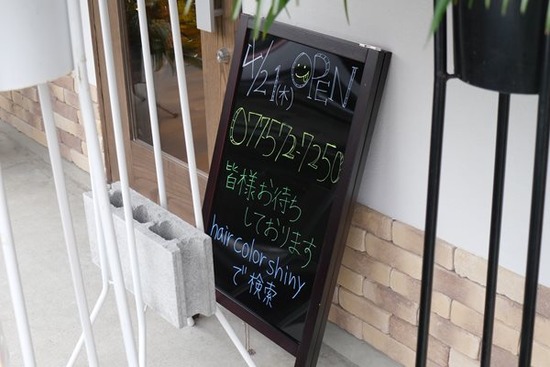 4/21(木) OPEN
077572-7250
皆様お待ち
しております
hair color shiny
で検索